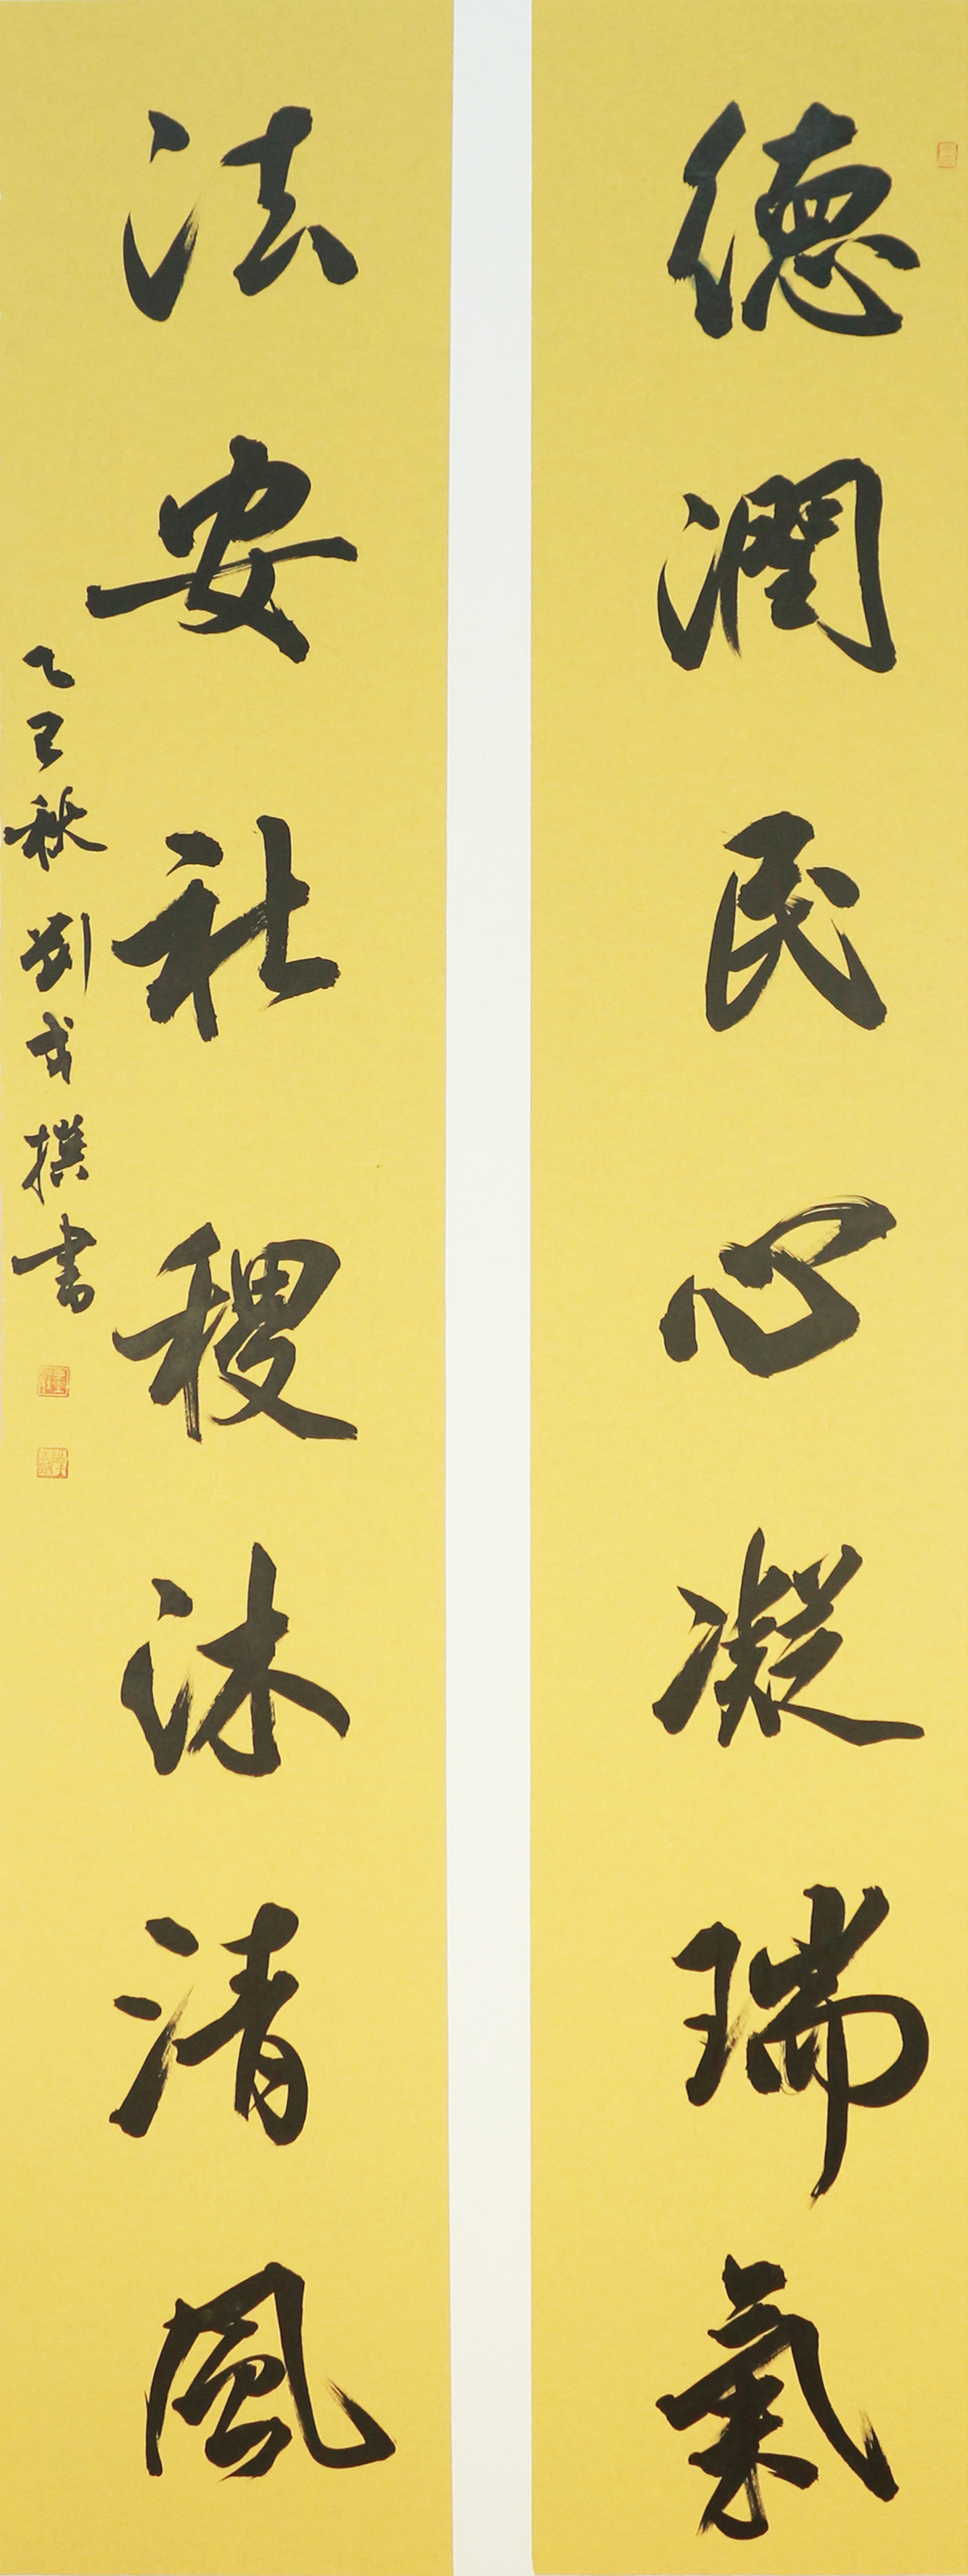 德潤民心凝瑞氣
法安社稷沐清風
乙巳秋劉
撰書